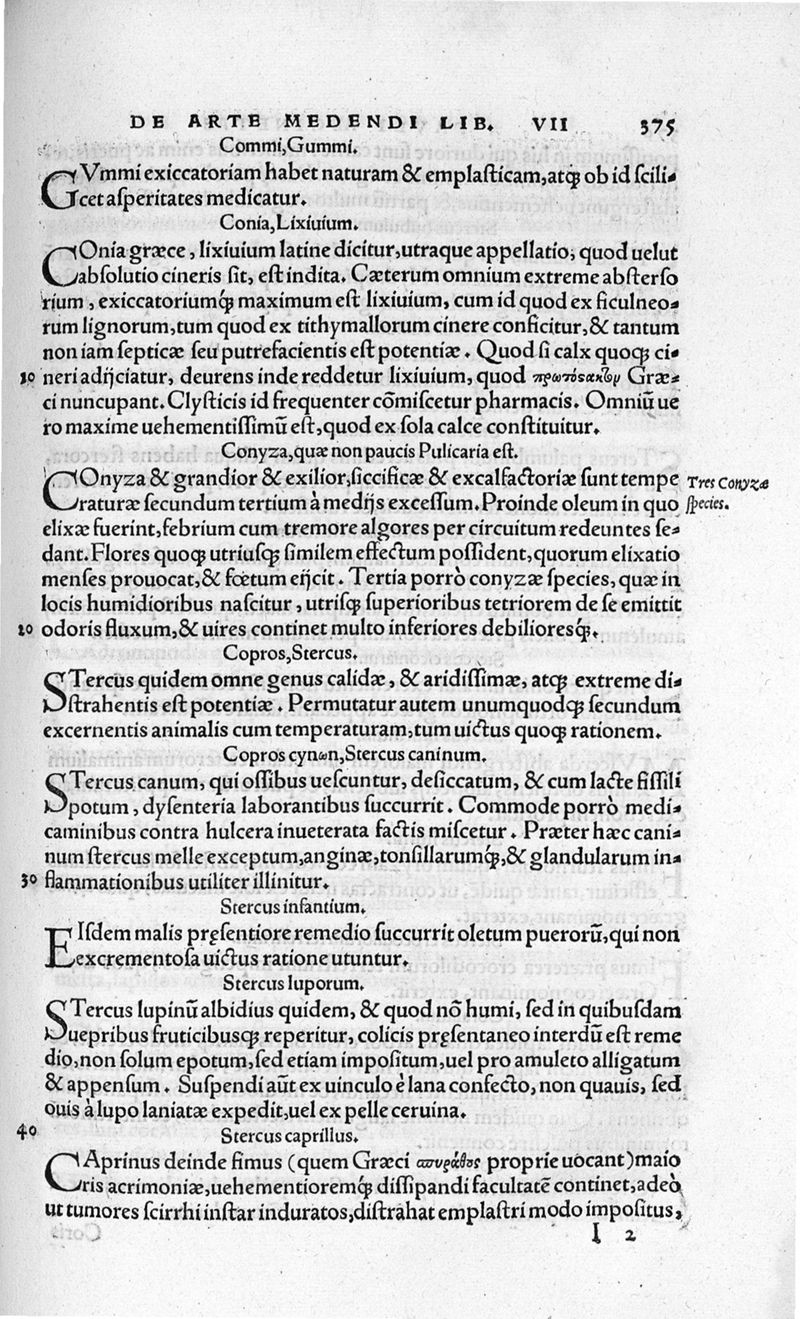 DE ARTE MEDENDI LIB. VII 375
Commi, Gummi.
GVmmi exiccatoriam habet naturam & emplasticam, atq; ob id scili-
cet asperitates medicatur.
Conia, Lixiuium.
COnia græce, lixiuium latine dicitur, utraque appellatio, quod uelut
absolutio cineris sit, est indita. Cæterum omnium extreme absterso
rium, exiccatoriumq́; maximum est lixiuium, cum id quod ex ficulneo-
rum lignorum, tum quod ex tithymallorum cinere conficitur, & tantum
non iam septicæ seu putrefacientis est potentiæ. Quod si calx quoq; ci-
10 neri adijciatur, deurens inde reddetur lixiuium, quod Græ-
ci nuncupant. Clysticis id frequenter cõmiscetur pharmacis. Omniũ ue
ro maxime uehementissimũ est, quod ex sola calce constituitur.
Conyza, quæ non paucis Pulicaria est.
COnyza & grandior & exilior, siccificæ & excalfactoriæ sunt tempe
raturæ secundum tertium à medijs excessum. Proinde oleum in quo
Tres Conyzæ
species.
elixæ fuerint, febrium cum tremore algores per circuitum redeuntes se-
dant. Flores quoq; utriusq; similem effectum possident, quorum elixatio
menses prouocat, & fœtum eijcit. Tertia porrò conyzæ species, quæ in
locis humidioribus nascitur, utrisq; superioribus tetriorem de se emittit
20 odoris fluxum, & uires continet multo inferiores debilioresq́;.
Copros, Stercus.
STercus quidem omne genus calidæ, & aridissimæ, atq; extreme di-
strahentis est potentiæ. Permutatur autem unumquodq; secundum
excernentis animalis cum temperaturam, tum uictus quoq; rationem.
Copros cynωn, Stercus caninum.
STercus canum, qui ossibus uescuntur, desiccatum, & cum lacte fissili
potum, dysenteria laborantibus succurrit. Commode porrò medi-
caminibus contra hulcera inueterata factis miscetur. Præter hæc cani-
num stercus melle exceptum, anginæ, tonsillarumq́;, & glandularum in-
30 flammationibus utiliter illinitur.
Stercus infantium.
EIsdem malis pręsentiore remedio succurrit oletum puerorũ, qui non
excrementosa uictus ratione utuntur.
Stercus luporum.
STercus lupinũ albidius quidem, & quod nõ humi, sed in quibusdam
uepribus fruticibusq; reperitur, colicis pręsentaneo interdũ est reme
dio, non solum epotum, sed etiam impositum, uel pro amuleto alligatum
& appensum. Suspendi aũt ex uinculo è lana confecto, non quauis, sed
ouis à lupo laniatæ expedit, uel ex pelle ceruina.
40 Stercus caprillus.
CAprinus deinde fimus (quem Græci proprie uocant) maio
ris acrimoniæ, uehementioremq́; dissipandi facultatẽ continet, adeò
ut tumores scirrhi instar induratos, distrahat emplastri modo impositus,
I 2